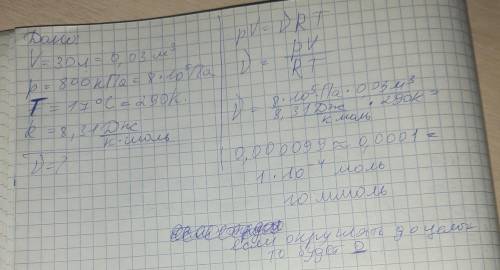 Дано:
V = 30 л = 0,03 м³
p = 800 кПа = 8 · 10⁵ Па
T = 17°C = 290 К.
R = 8,31 Дж / К·моль
ν = ?
pV = νRT
ν = pV / RT
ν = 8 · 10⁵ Па · 0,03 м³ / 8,31 Дж / К·моль · 290К =
0,000099 ≈ 0,0001 =
1 · 10⁻⁴ моль
10 ммоль
если округлять до целых
то будет 0